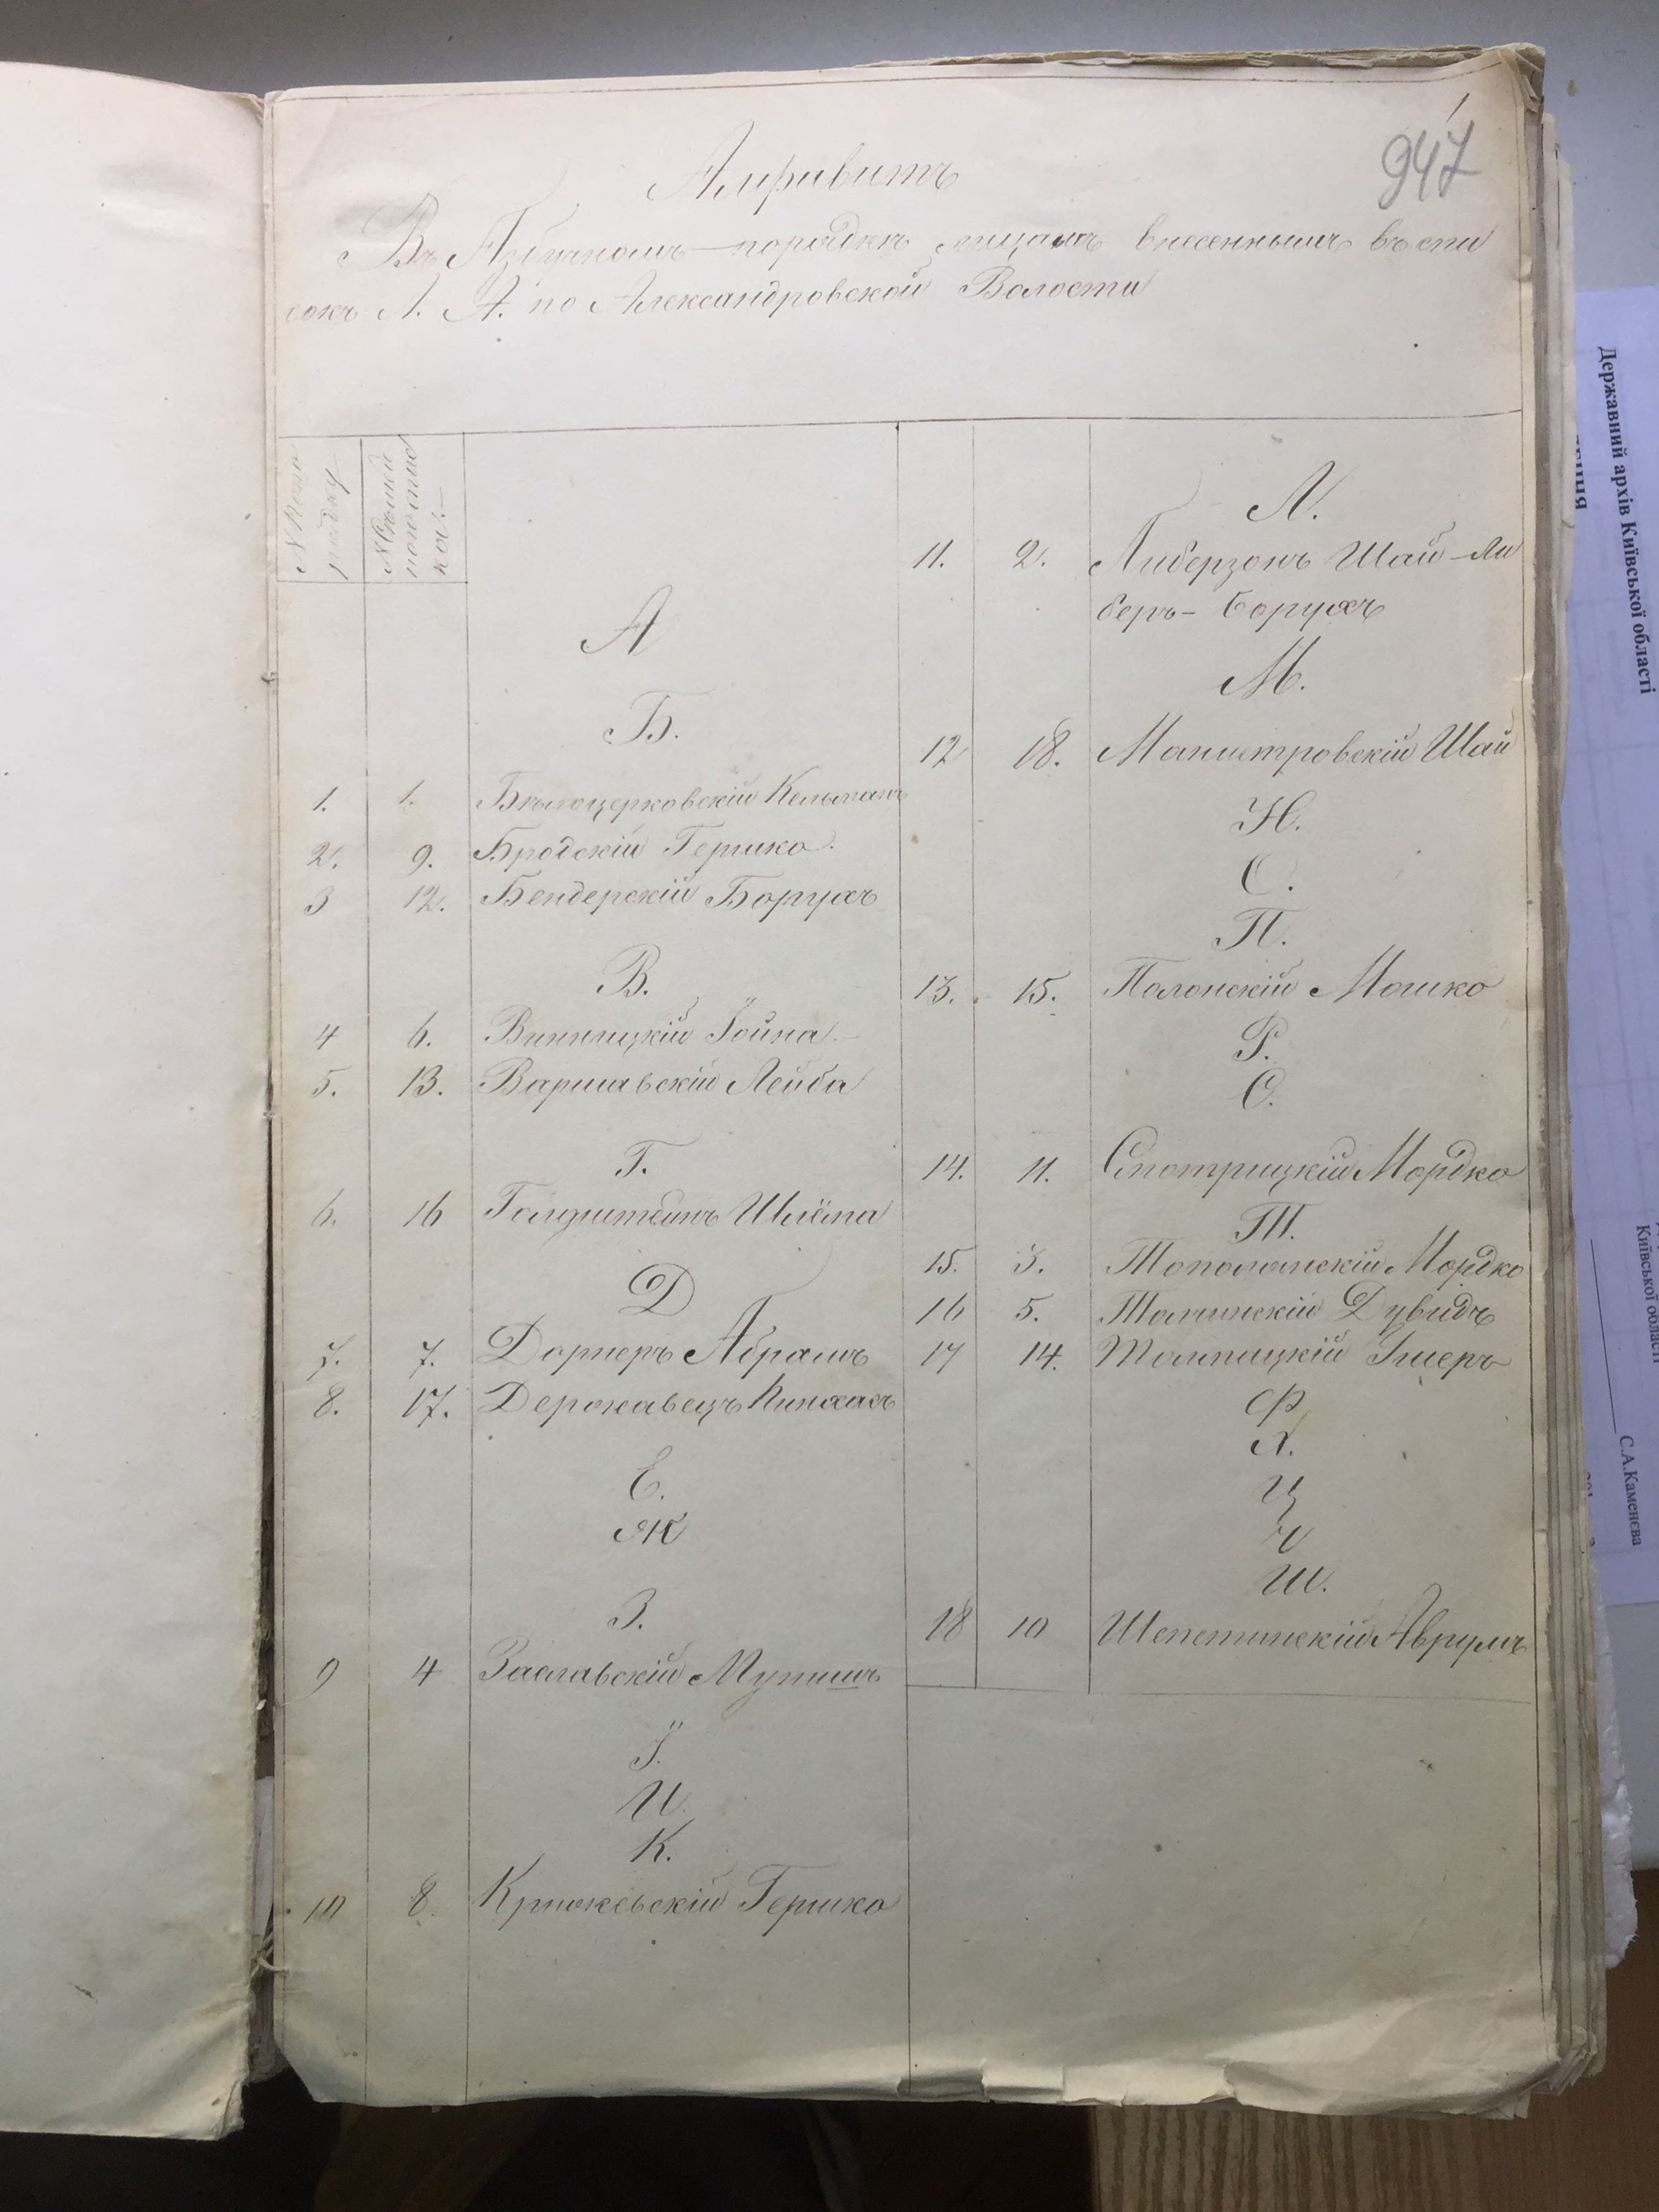 1
947
Алфавитъ
Въ Азбучномъ порядкѣ лицамъ внесеннымъ въ спи
сокъ Л. А. по Александровской Волости
А
Б.
1. 1. Бѣлоцерковскій Кельманъ
2. 9. Бродскій Гершко.
3 12. Бендерскій Борухъ
В.
4 6. Винницкій Іойна
5. 13. Варшавскій Лейба
Г.
6. 16 Голдштейнъ Шлёма
Д
7. 7. Дорнеръ Абрамъ
8. 17. Державецъ Пинхасъ
Е.
Ж
З.
9 4 Заславскій
І.
И
К.
10 8. Гершко
Л.
11. 2. Либерзонъ Шай-Ли
беръ-Борухъ
М.
12 18. Монистровскій Шай
Н.
О.
П.
13. 15. Полонскій Мошко
Р.
С.
14. 11. Смотрицкій Мордко
Т.
15. 3. Тополянскій Мордко
16 5. Талинскій Дувидъ
17 14. Толпацкій
Ф
Х.
Ц
Ч
Ш.
18 10 Шепетинскій Аврумъ
Державний архів Київської області
Київської області
С.А.Каменєва